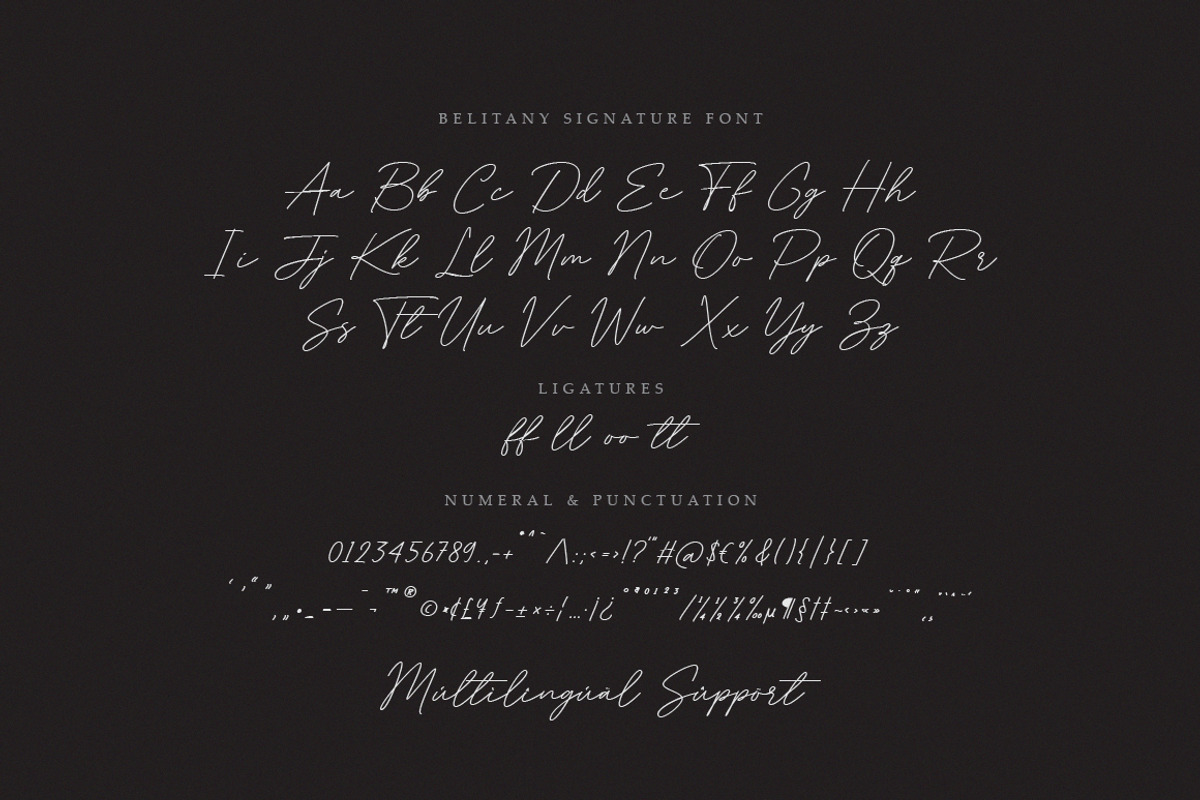 BELITANY SIGNATURE FONT
Aa Bb Cc Dd Ee Ff Gg Hh
Ii Jj Kk Ll Mm Nn Oo Pp Qq Rr
Ss Tt Uu Vv Ww Xx Yy Zz
LIGATURES
ff ll oo tt
NUMERAL & PUNCTUATION
0123456789.,-+•^~/\:;<=>!?'"#@$€%&(){/}[]
‘ ‚ “ ” ‚ „ • _ – — ¯ ¬ ™ ® © ¤ ¢ £ ¥ ƒ − ± × ÷ ¦ … · ¡ ¿ º ª 0 1 2 3 / ¼ ½ ¾ ‰ µ ¶ § † ‡ ~ ‹ › « »
Multilingual Support